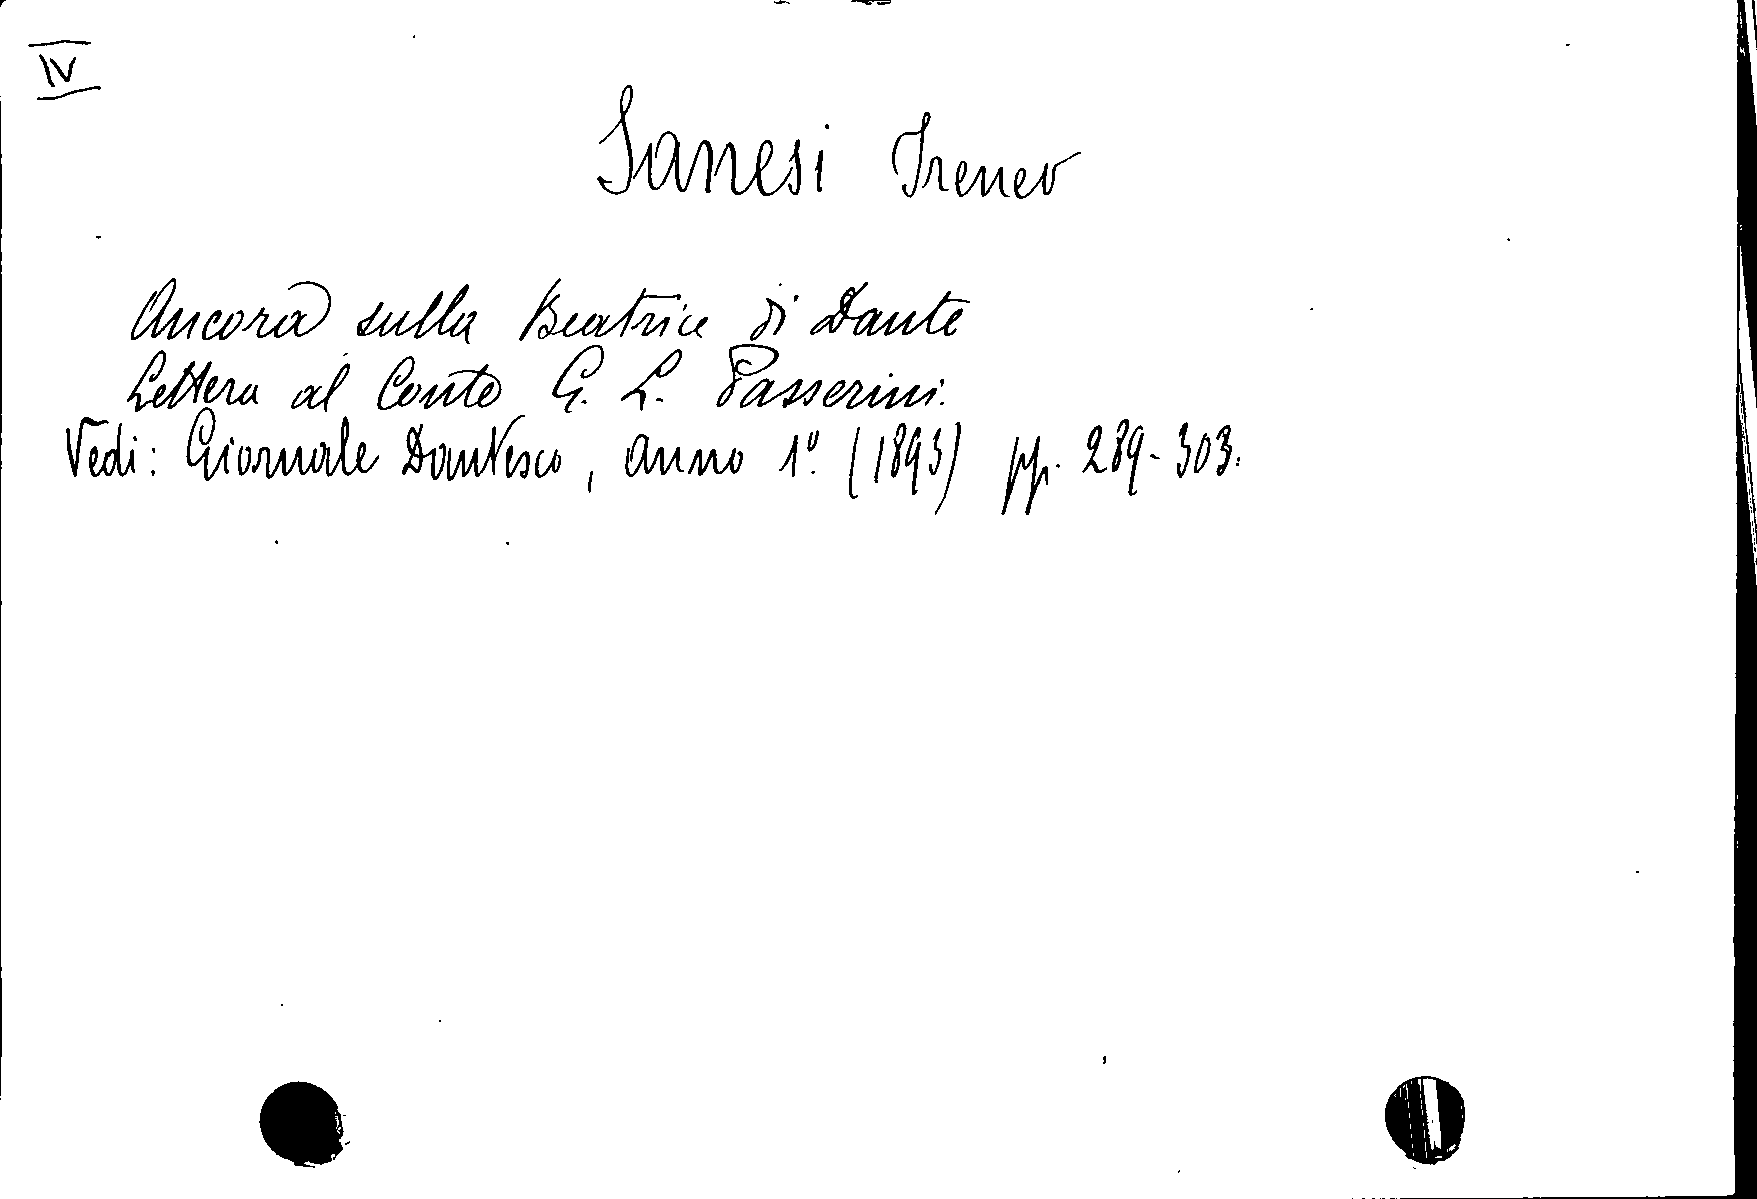 IV
Sanesi Ireneo
Ancora sulla Beatrice di Dante
Lettera al Conte G. L. Passerini.
Vedi: Giornale Dantesco, anno 1º. (1893) pp. 289-303.